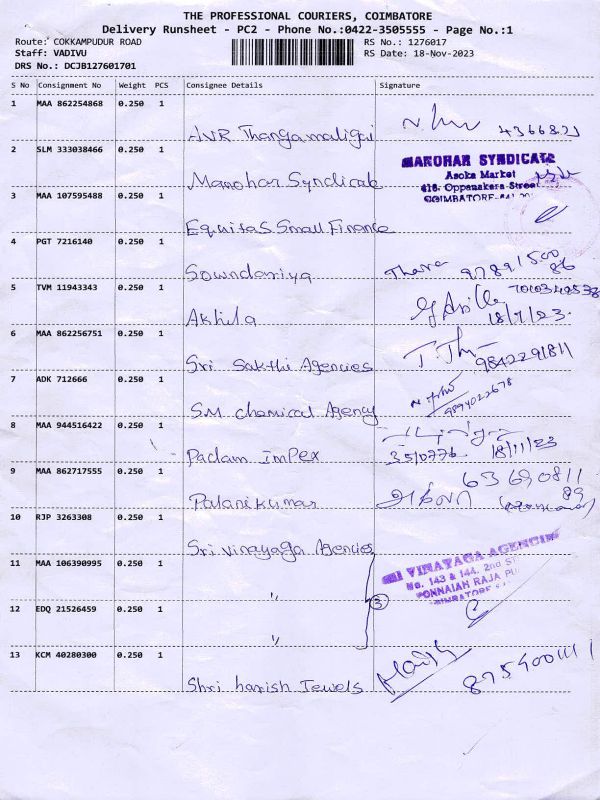 THE PROFESSIONAL COURIERS, COIMBATORE
Delivery Runsheet - PC2 - Phone No.:0422-3505555 - Page No.:1
Route: COKKAMPUDUR ROAD RS No.: 1276017
Staff: VADIVU RS Date: 18-Nov-2023
DRS No.: DCJB127601701
S No Consignment No Weight PCS Consignee Details Signature
1 MAA 862254868 0.250 1
AVR Thangamaligai 4366821
2 SLM 333038466 0.250 1 MANOHAR SYNDICATE
Asoka Market
Manohar Syndicate 418, Oppanakara Street
COIMBATORE-641 001
3 MAA 107595488 0.250 1
Equitas Small Finance
4 PGT 7216140 0.250 1
Sowndariya Thara 97891500
86
5 TVM 11943343 0.250 1
Akhila 18/7/23.
6 MAA 862256751 0.250 1
Sri Sakthi Agencies 9842291811
7 ADK 712666 0.250 1
S.M chemical Agency 9894022678
8 MAA 944516422 0.250 1
Padam impex 18/11/23
9 MAA 862717555 0.250 1
Palanikumar 63690811
89
10 RJP 3263308 0.250 1
Sri vinayaga Agencies SRI VINAYAGA AGENCIES
11 MAA 106390995 0.250 1 No. 143 & 144, 2nd ST
PONNAIAH RAJA PU
" 3 COIMBATORE
12 EDQ 21526459 0.250 1
"
13 KCM 40280300 0.250 1
Shri harish Jewels 8754001111